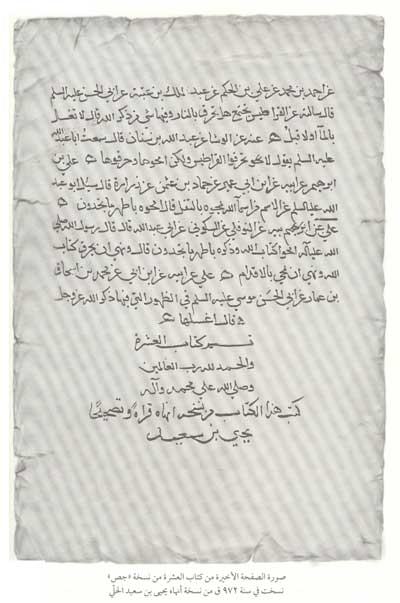 عن احمد بن محمد عن علي بن الحكم عن عبد الملك بن عتبة عن ابي الحسن عليه السلم
قال سالته عن القراطيس تجتمع هل تحرق بالنار وفيها شي من ذكر الله قال لا تغسل
بالماء اولا قبل ه عنه عن الوشا عن عبد الله بن سنان قال سمعت ابا عبد الله
عليه السلم يقول لا تحرقوا القراطيس ولكن امحوها وحرقوها ه علي بن
ابرهيم عن ابيه عن ابن ابي عمير عن حماد بن عثمن عن زرارة قال سيل ابو عبد
الله عليه السلم عن الاسم من اسماء الله يمحوه بالتفل قال امحوه باطهر ما تجدون ه
علي عن ابرهيم عن ابيه عن النوفلي عن السكوني عن ابي عبد الله قال قال رسول الله صلى
الله عليه اله امحوا كتاب الله وذكره باطهر ما تجدون قال ونهى ان يحرق كتاب
الله ونهى ان يمحى بالاقدام ه علي عن ابيه عن ابن ابي عمير عن محمد بن اسحاق
بن عمار عن ابي الحسن موسى عليه السلم في الظهور التي فيها ذكر الله عز وجل
قال اغسلها ه
تم كتاب العشرة
والحمد لله رب العالمين
وصلى الله على محمد وآله
كتب هذا الكتاب من نسخه انهاه قراه وتصحيحًا
يحيى بن سعيد
صورة الصفحة الأخيرة من كتاب العشرة من نسخة «جص»
نسخت في سنة ٩٧٢ ق من نسخة أنهاه يحيى بن سعيد الحلّي